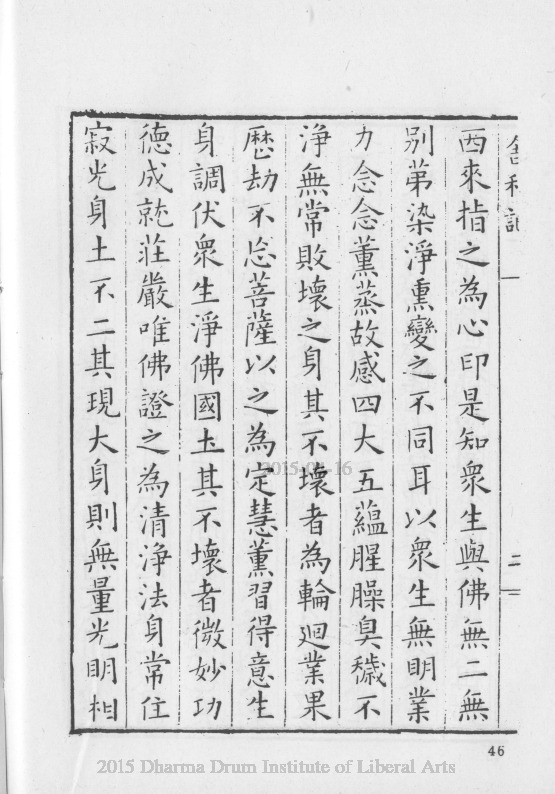 西來指之為心印是知衆生與佛無二無
别苐染淨熏變之不同耳以衆生無明業
力念念薰蒸故感四大五蘊腥臊臭穢不
淨無常敗壞之身其不壞者為輪廻業果
歷劫不忘菩薩以之為定慧薰習得意生
身調伏衆生淨佛國土其不壞者微妙功
德成就莊嚴唯佛證之為清淨法身常住
寂光身土不二其現大身則無量光明相
二
46
2015-04-16
2015 Dharma Drum Institute of Liberal Arts